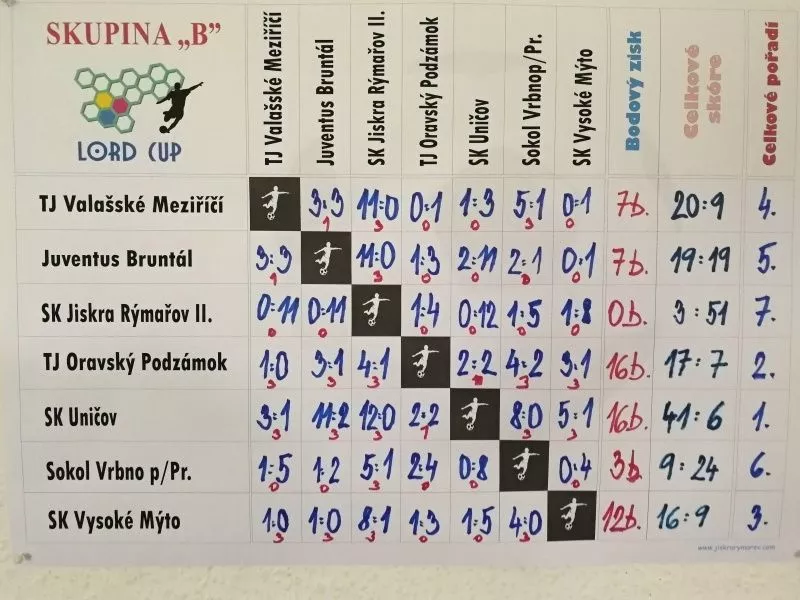 SKUPINA „B”
LORD CUP
TJ Valašské Meziříčí
Juventus Bruntál
SK Jiskra Rýmařov II.
TJ Oravský Podzámok
SK Uničov
Sokol Vrbnop/Pr.
SK Vysoké Mýto
Bodový zisk
Celkové skóre
Celkové pořadí
TJ Valašské Meziříčí 3:3 11:0 0:1 1:3 5:1 0:1 7b. 20:9 4.
1 3 0 0 3 0
Juventus Bruntál 3:3 11:0 1:3 2:11 2:1 0:1 7b. 19:19 5.
1 3 0 0 0
SK Jiskra Rýmařov II. 0:11 0:11 1:4 0:12 1:5 1:8 0b. 3:51 7.
0 0 0 0 0 0
TJ Oravský Podzámok 1:0 3:1 4:1 2:2 4:2 3:1 16b. 17:7 2.
3 3 3 3 3
SK Uničov 3:1 11:2 12:0 2:2 8:0 5:1 16b. 41:6 1.
3 3 3 1 3 3
Sokol Vrbno p/Pr. 1:5 1:2 5:1 2:4 0:8 0:4 3b. 9:24 6.
0 0 3 0 0 0
SK Vysoké Mýto 1:0 1:0 8:1 1:3 1:5 4:0 12b. 16:9 3.
3 3 3 0 0 3
www.jiskrarymarov.com